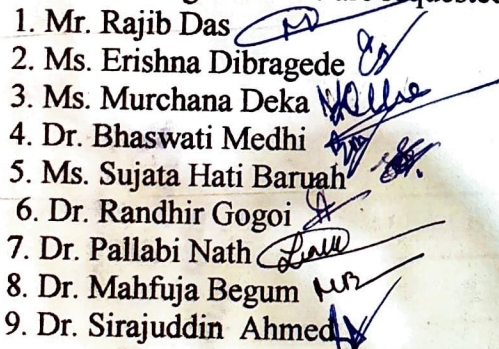 are requested
1. Mr. Rajib Das
2. Ms. Erishna Dibragede
3. Ms. Murchana Deka
4. Dr. Bhaswati Medhi
5. Ms. Sujata Hati Baruah
6. Dr. Randhir Gogoi
7. Dr. Pallabi Nath
8. Dr. Mahfuja Begum MB
9. Dr. Sirajuddin Ahmed